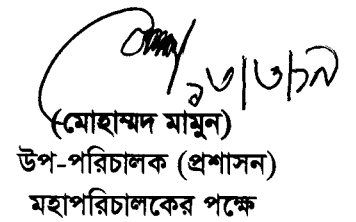 (মোহাম্মদ মামুন)
উপ-পরিচালক (প্রশাসন)
মহাপরিচালকের পক্ষে